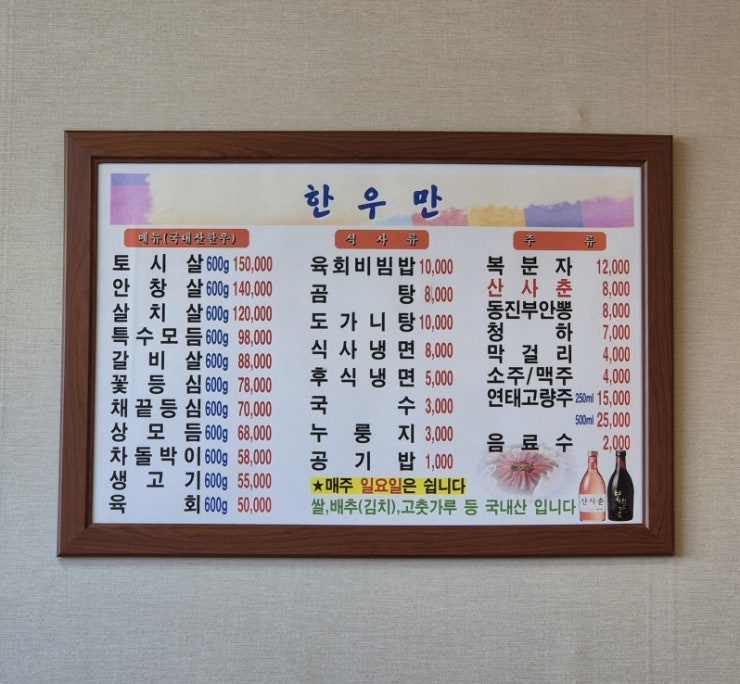 한우만
메뉴(국내산한우)
토시살 600g 150,000
안창살 600g 140,000
살치살 600g 120,000
특수모듬 600g 98,000
갈비살 600g 88,000
꽃등심 600g 78,000
채끝등심 600g 70,000
상모듬 600g 68,000
차돌박이 600g 58,000
생고기 600g 55,000
육회 600g 50,000
식사류
육회비빔밥 10,000
곰탕 8,000
도가니탕 10,000
식사냉면 8,000
후식냉면 5,000
국수 3,000
누룽지 3,000
공기밥 1,000
★매주 일요일은 쉽니다
쌀,배추(김치),고춧가루 등 국내산 입니다
주류
복분자 12,000
산사춘 8,000
동진부안뽕 8,000
청하 7,000
막걸리 4,000
소주/맥주 4,000
연태고량주 250ml 15,000
500ml 25,000
음료수 2,000
산사춘